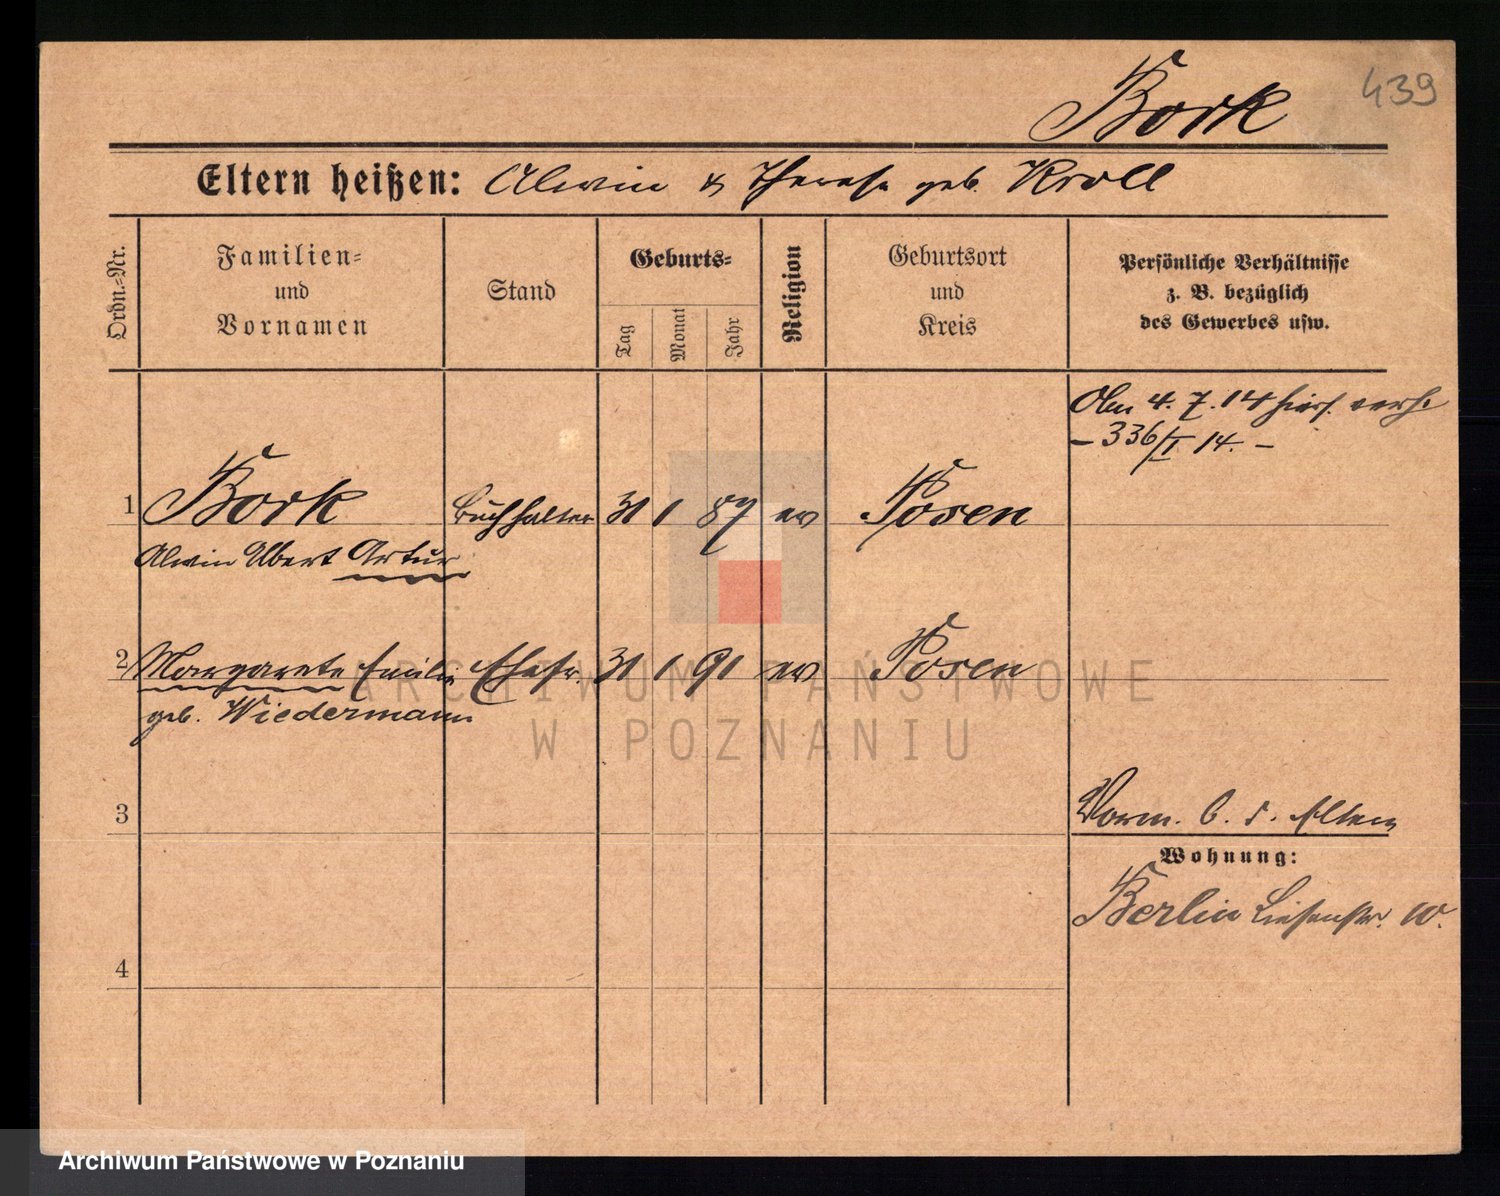 439
Bork
Eltern heißen: Alwin & Therese geb. Kroll
Ordn.-Nr.
Familien-
und
Vornamen
Stand
Geburts-
Tag
Monat
Jahr
Religion
Geburtsort
und
Kreis
Persönliche Verhältnisse
z. B. bezüglich
des Gewerbes usw.
Am 4. 7. 14 hiers. verh.
- 336/I 14. -
1 Bork Buchhalter 31 1 87 ev Posen
Alwin Albert Artur
2 Margarete Emilie Ehefr. 31 1 91 ev Posen
geb. Wiedermann
3
Vorm. b. d. Eltern
Wohnung:
Berlin Liesenstr. 10.
4
ARCHIWUM PAŃSTWOWE
W POZNANIU
Archiwum Państwowe w Poznaniu